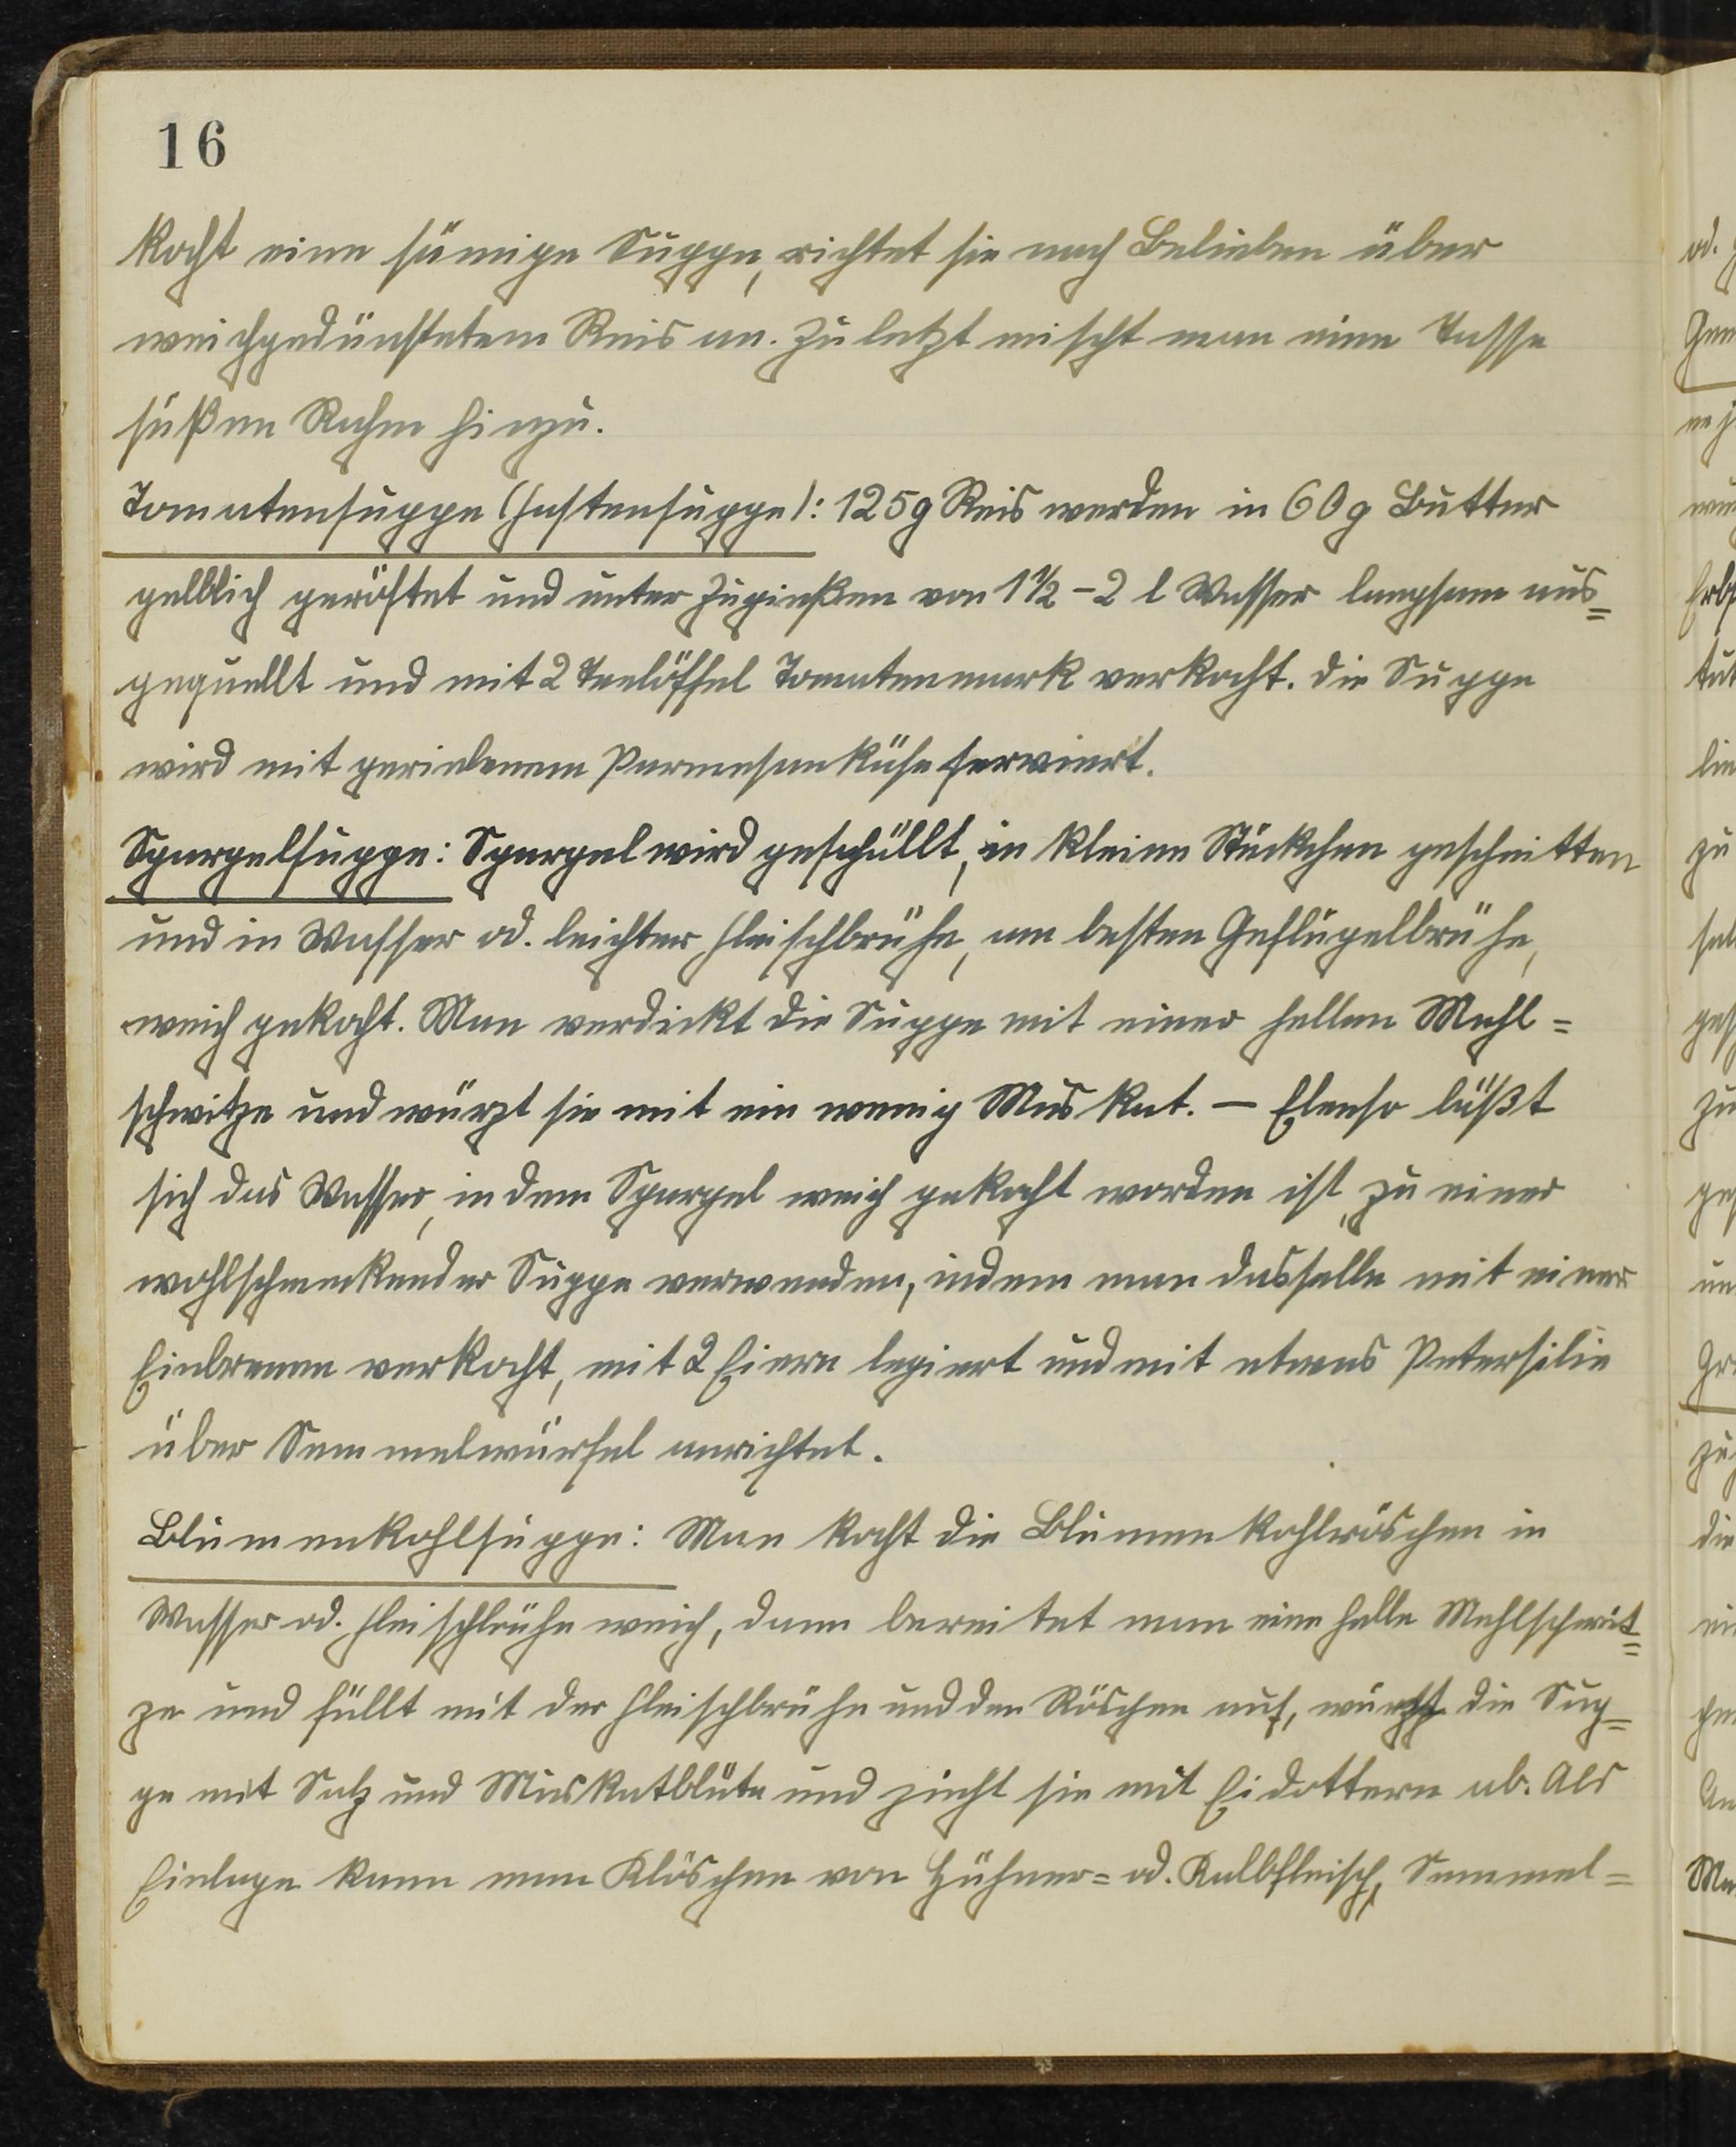 16
kocht eine sämige Suppe, richtet sie nach Belieben über
weichgedünstetem Reis an. Zuletzt mischt man eine Tasse
süßen Rahm hinzu.
Tomatensuppe (Fastensuppe): 125g Reis werden in 60g Butter
gelblich geröstet und unter Zugießen von 1½ - 2 l Wasser langsam aus=
gequellt und mit 2 Teelöffel Tomatenmark verkocht. Die Suppe
wird mit geriebenem Parmesankäse serviert.
Spargelsuppe: Spargel wird geschällt, in kleine Stückchen geschnitten
und in Wasser od. leichter Fleischbrühe, am besten Geflügelbrühe,
weich gekocht. Man verdickt die Suppe mit einer hellen Mehl=
schwitze und würzt sie mit ein wenig Muskat. — Ebenso läßt
sich das Wasser, in dem Spargel weich gekocht worden ist, zu einer
wohlschmeckender Suppe verwenden, indem man dasselbe mit einer
Einbrenne verkocht, mit 2 Eiern legiert und mit etwas Petersilie
über Semmelwürfel anrichtet.
Blumenkohlsuppe: Man kocht die Blumenkohlröschen in
Wasser od. Fleischbrühe weich, dann bereitet man eine helle Mehlschwit=
ze und füllt mit der Fleischbrühe und den Röschen auf, würzt die Sup=
pe mit Salz und Muskatblüte und zieht sie mit Eidottern ab. Als
Einlage kann man Klöschen von Hühner= od. Kalbfleisch, Semmel=